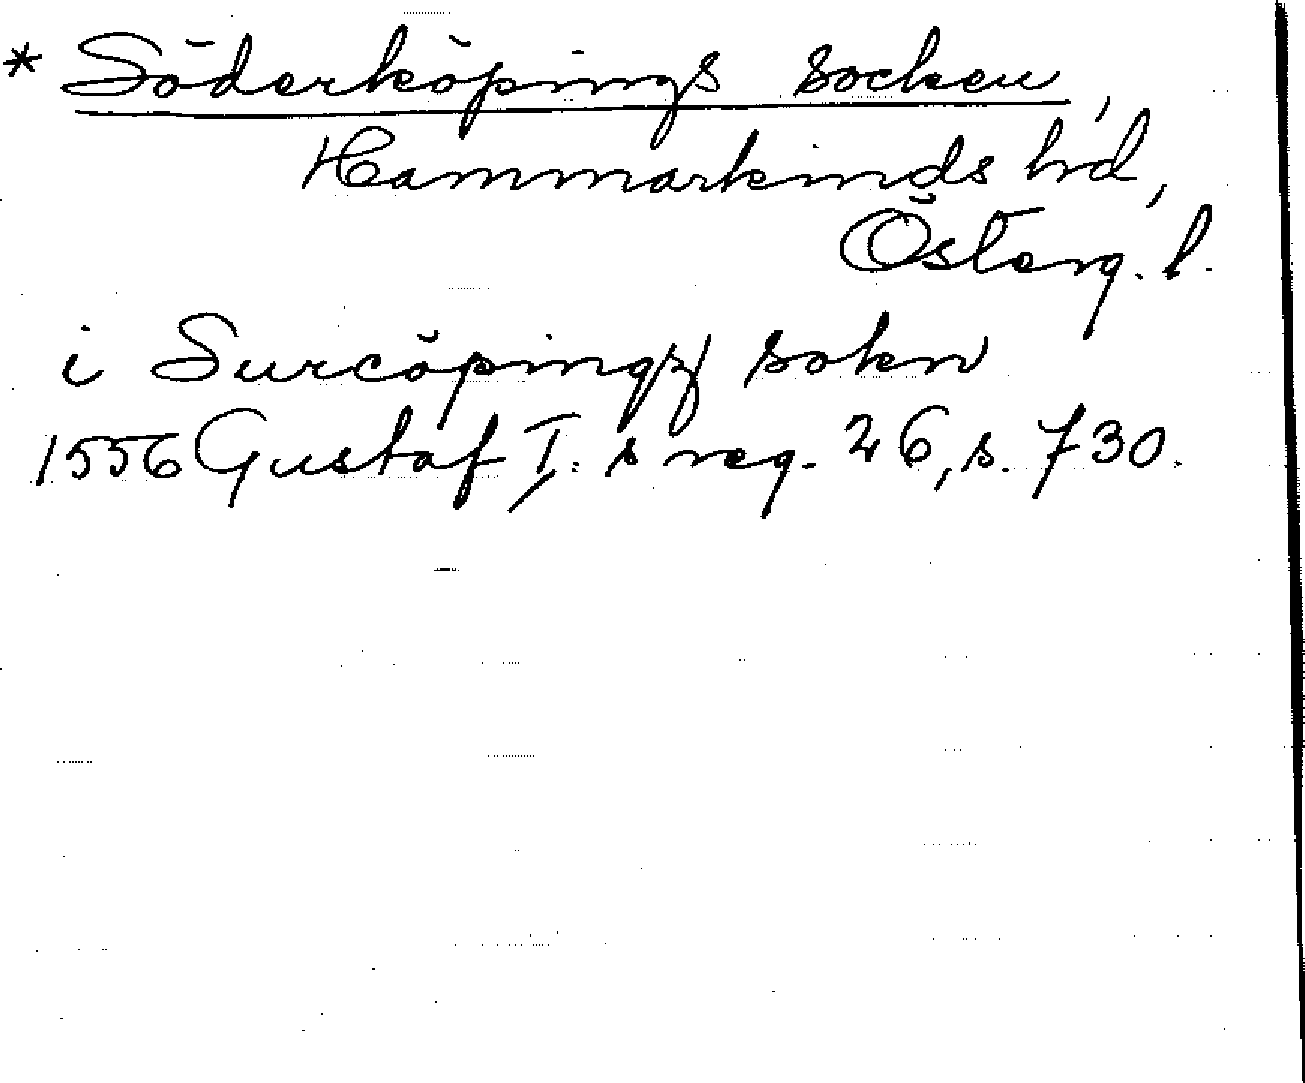 * Söderköpings socken,
Hammarkinds hd,
Österg. l.
i Surcöpingz sokn
1556 Gustaf I:s reg. 26, s. 730.